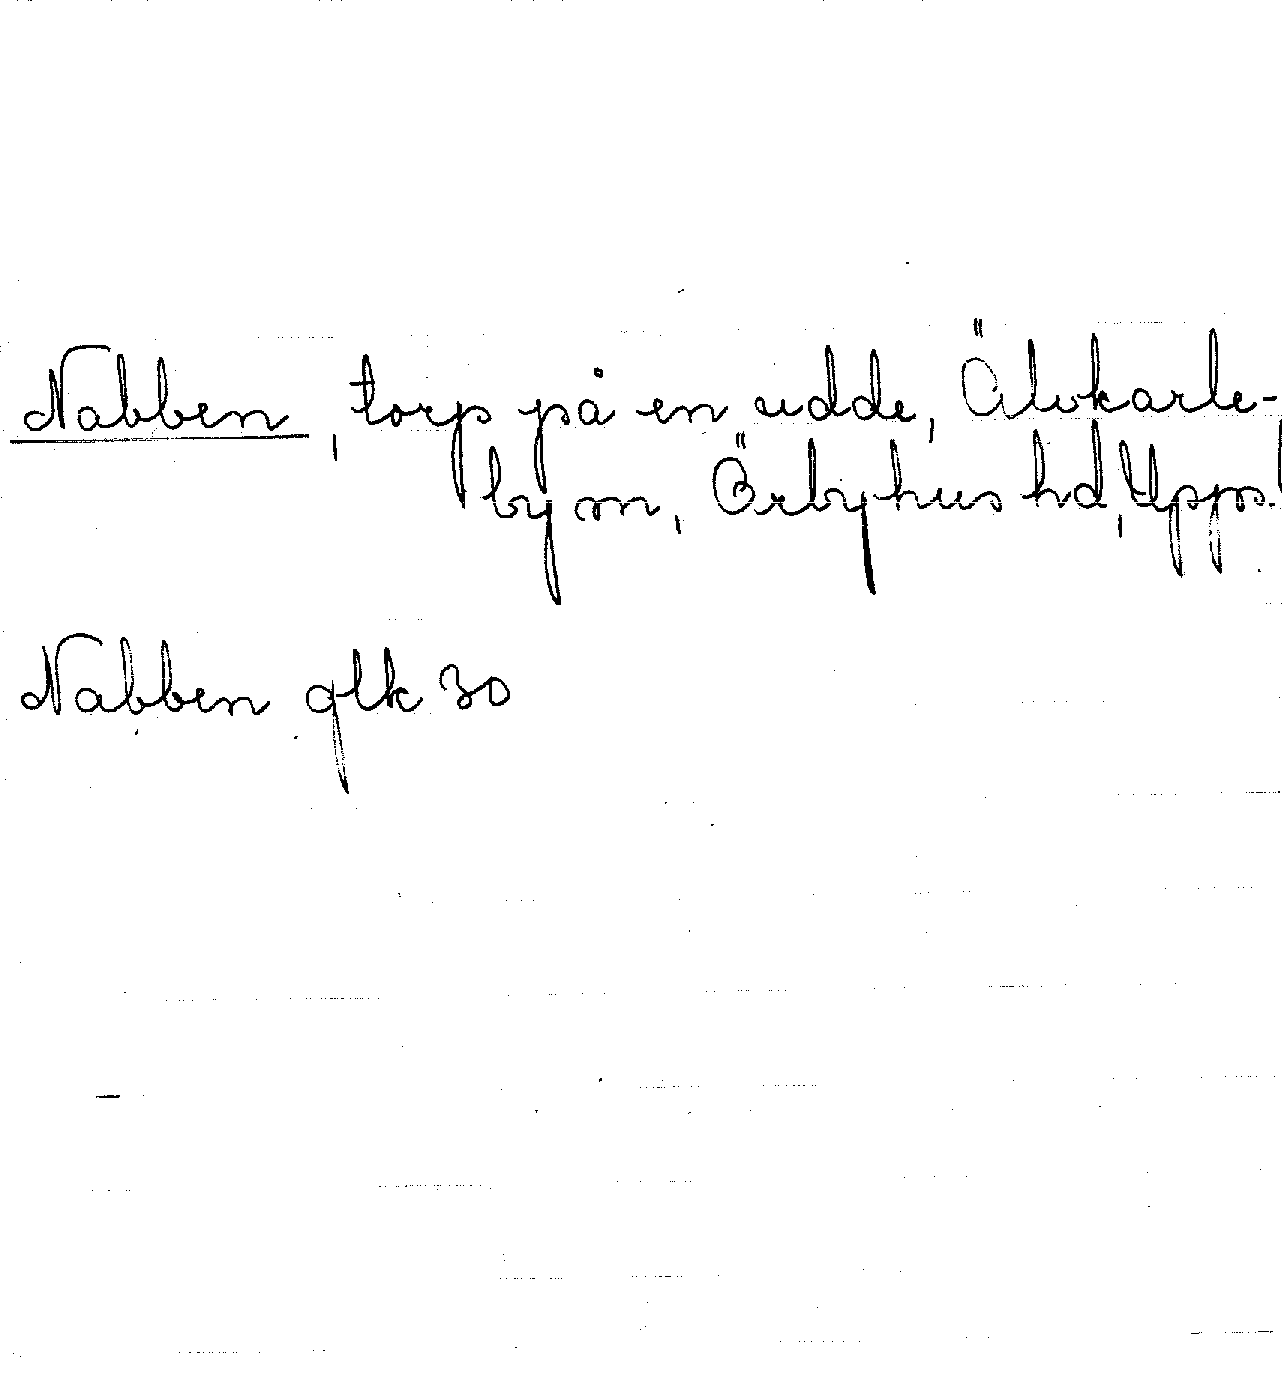 Nabben, torp på en udde, Älvkarle-
by sn, Örbyhus hd, Upps. l
Nabben glk 30